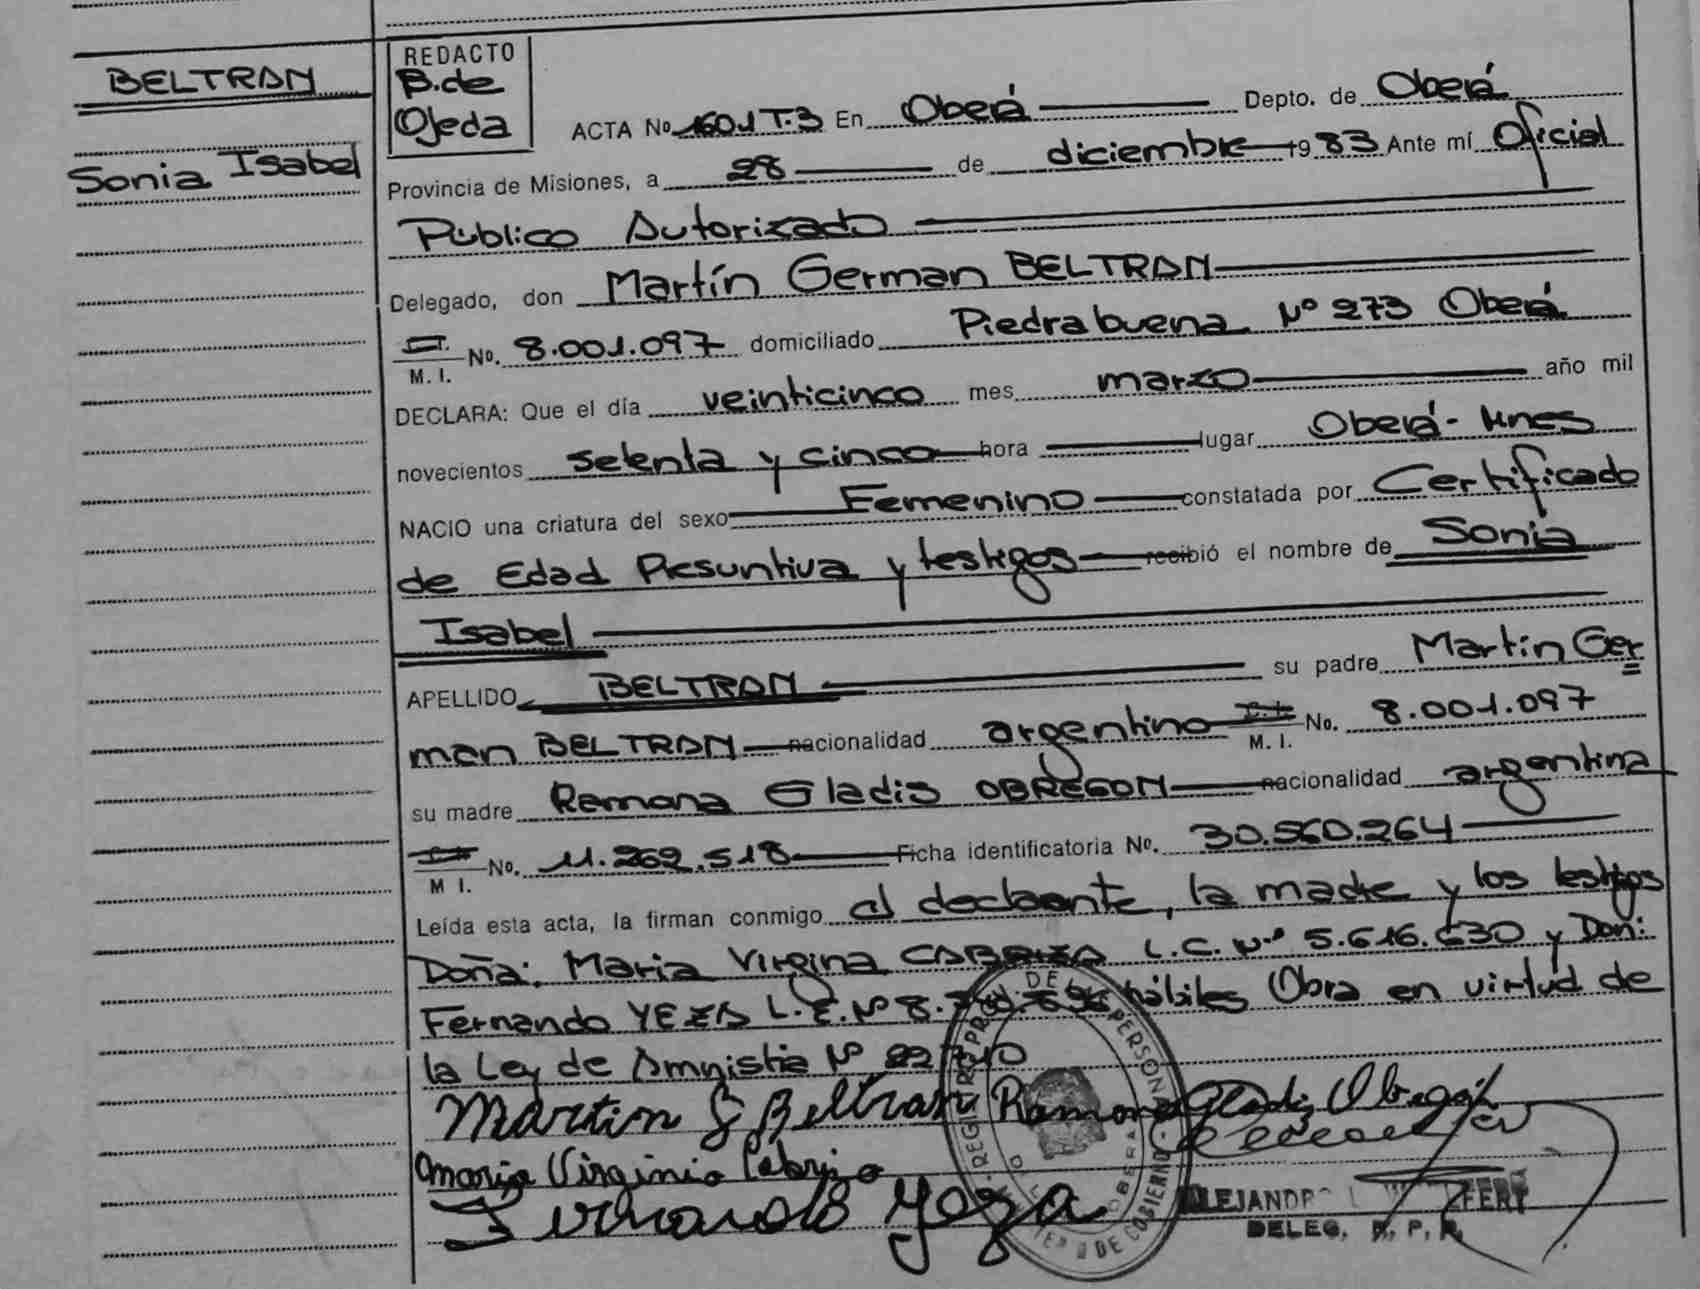 BELTRAN
Sonia Isabel
REDACTO
B. de
Ojeda
ACTA No. 1601 T.3 En Oberá Depto. de Oberá
Provincia de Misiones, a 28 de diciembre 19 83 Ante mí Oficial
Público Autorizado
Delegado, don Martín German BELTRAN
No. 8.001.097 domiciliado Piedrabuena Nº 273 Oberá
M. I.
DECLARA: Que el día veinticinco mes marzo año mil
novecientos setenta y cinco hora lugar Oberá - Mnes
NACIO una criatura del sexo Femenino constatada por Certificado
de Edad Presuntiva y testigos recibió el nombre de Sonia
Isabel
APELLIDO BELTRAN su padre Martín Ger
man BELTRAN nacionalidad argentino No. 8.001.097
M. I.
su madre Ramona Gladis OBREGON nacionalidad argentina
No. 11.262.518 Ficha identificatoria No. 30.560.264
M I.
Leída esta acta, la firman conmigo el declarante, la madre y los testigos
Doña: Maria Virgina CABRIZA L.C. Nº 5.616.630 y Don:
Fernando YEZA L.E. Nº 8. hábiles Obra en virtud de
la Ley de Amnistia Nº
Martin G Beltran Ramona Gladis Obregón
Maria Virginia Cabriza
Fernando Yeza
REGISTRO PROV. DE PERSONAS
OBERA
DE GOBIERNO
ALEJANDRO
DELEG. R. P. P.